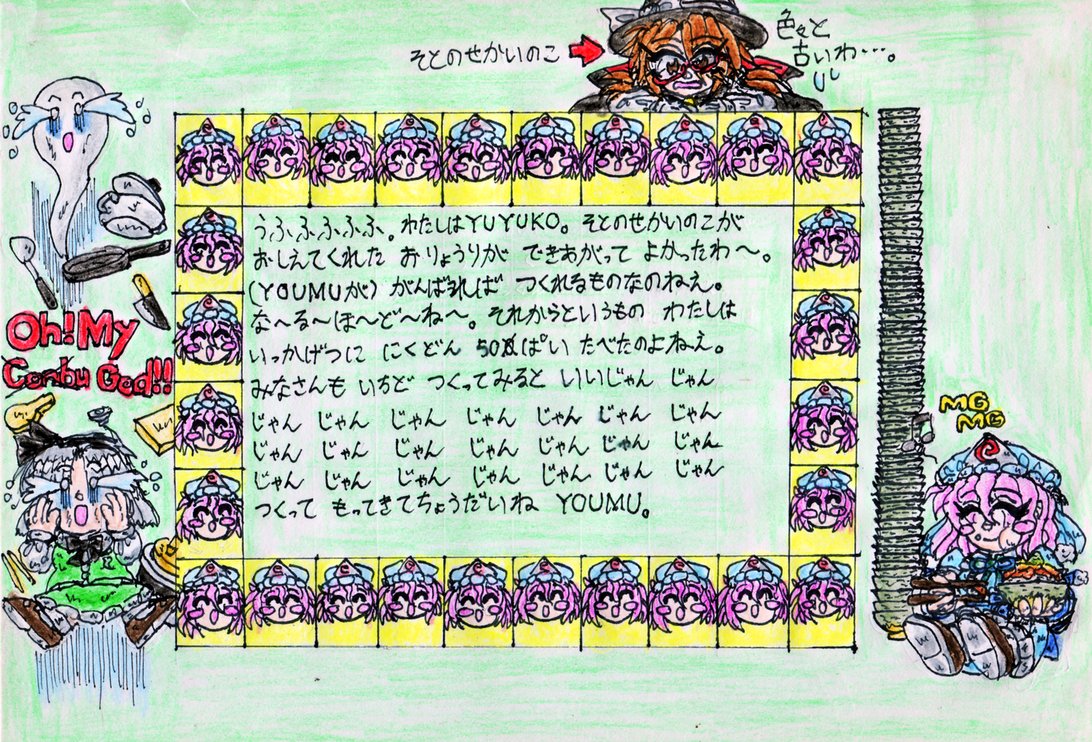 そとのせかいのこ
色々と
古いわ・・・。
うふふふふふ。わたしはYUYUKO。そとのせかいのこが
おしえてくれた おりょうりが できあがって よかったわ〜。
(YOUMUが) がんばれば つくれるものなのねえ。
な〜る〜ほ〜ど〜ね〜。それからというもの わたしは
いっかげつに にくどん 50ぱい たべたのよねえ。
みなさんも いちど つくってみると いいじゃん じゃん
じゃん じゃん じゃん じゃん じゃん じゃん じゃん
じゃん じゃん じゃん じゃん じゃん じゃん じゃん
じゃん じゃん じゃん じゃん じゃん じゃん じゃん
つくって もってきてちょうだいね YOUMU。
Oh! My
Conbu God!!
MG
MG